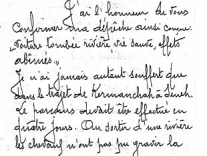 J'ai l'honneur de vous
confirmer ma dépêche ainsi conçue
"voiture tombée rivière, vie sauve, effets
abîmés".
Je n'ai jamais autant souffert que
dans le trajet de Kermanchah à Sineh.
Le parcours devait être effectué en
quatre jours. Au sortir d'une rivière
les chevaux n'ont pas pu gravir la